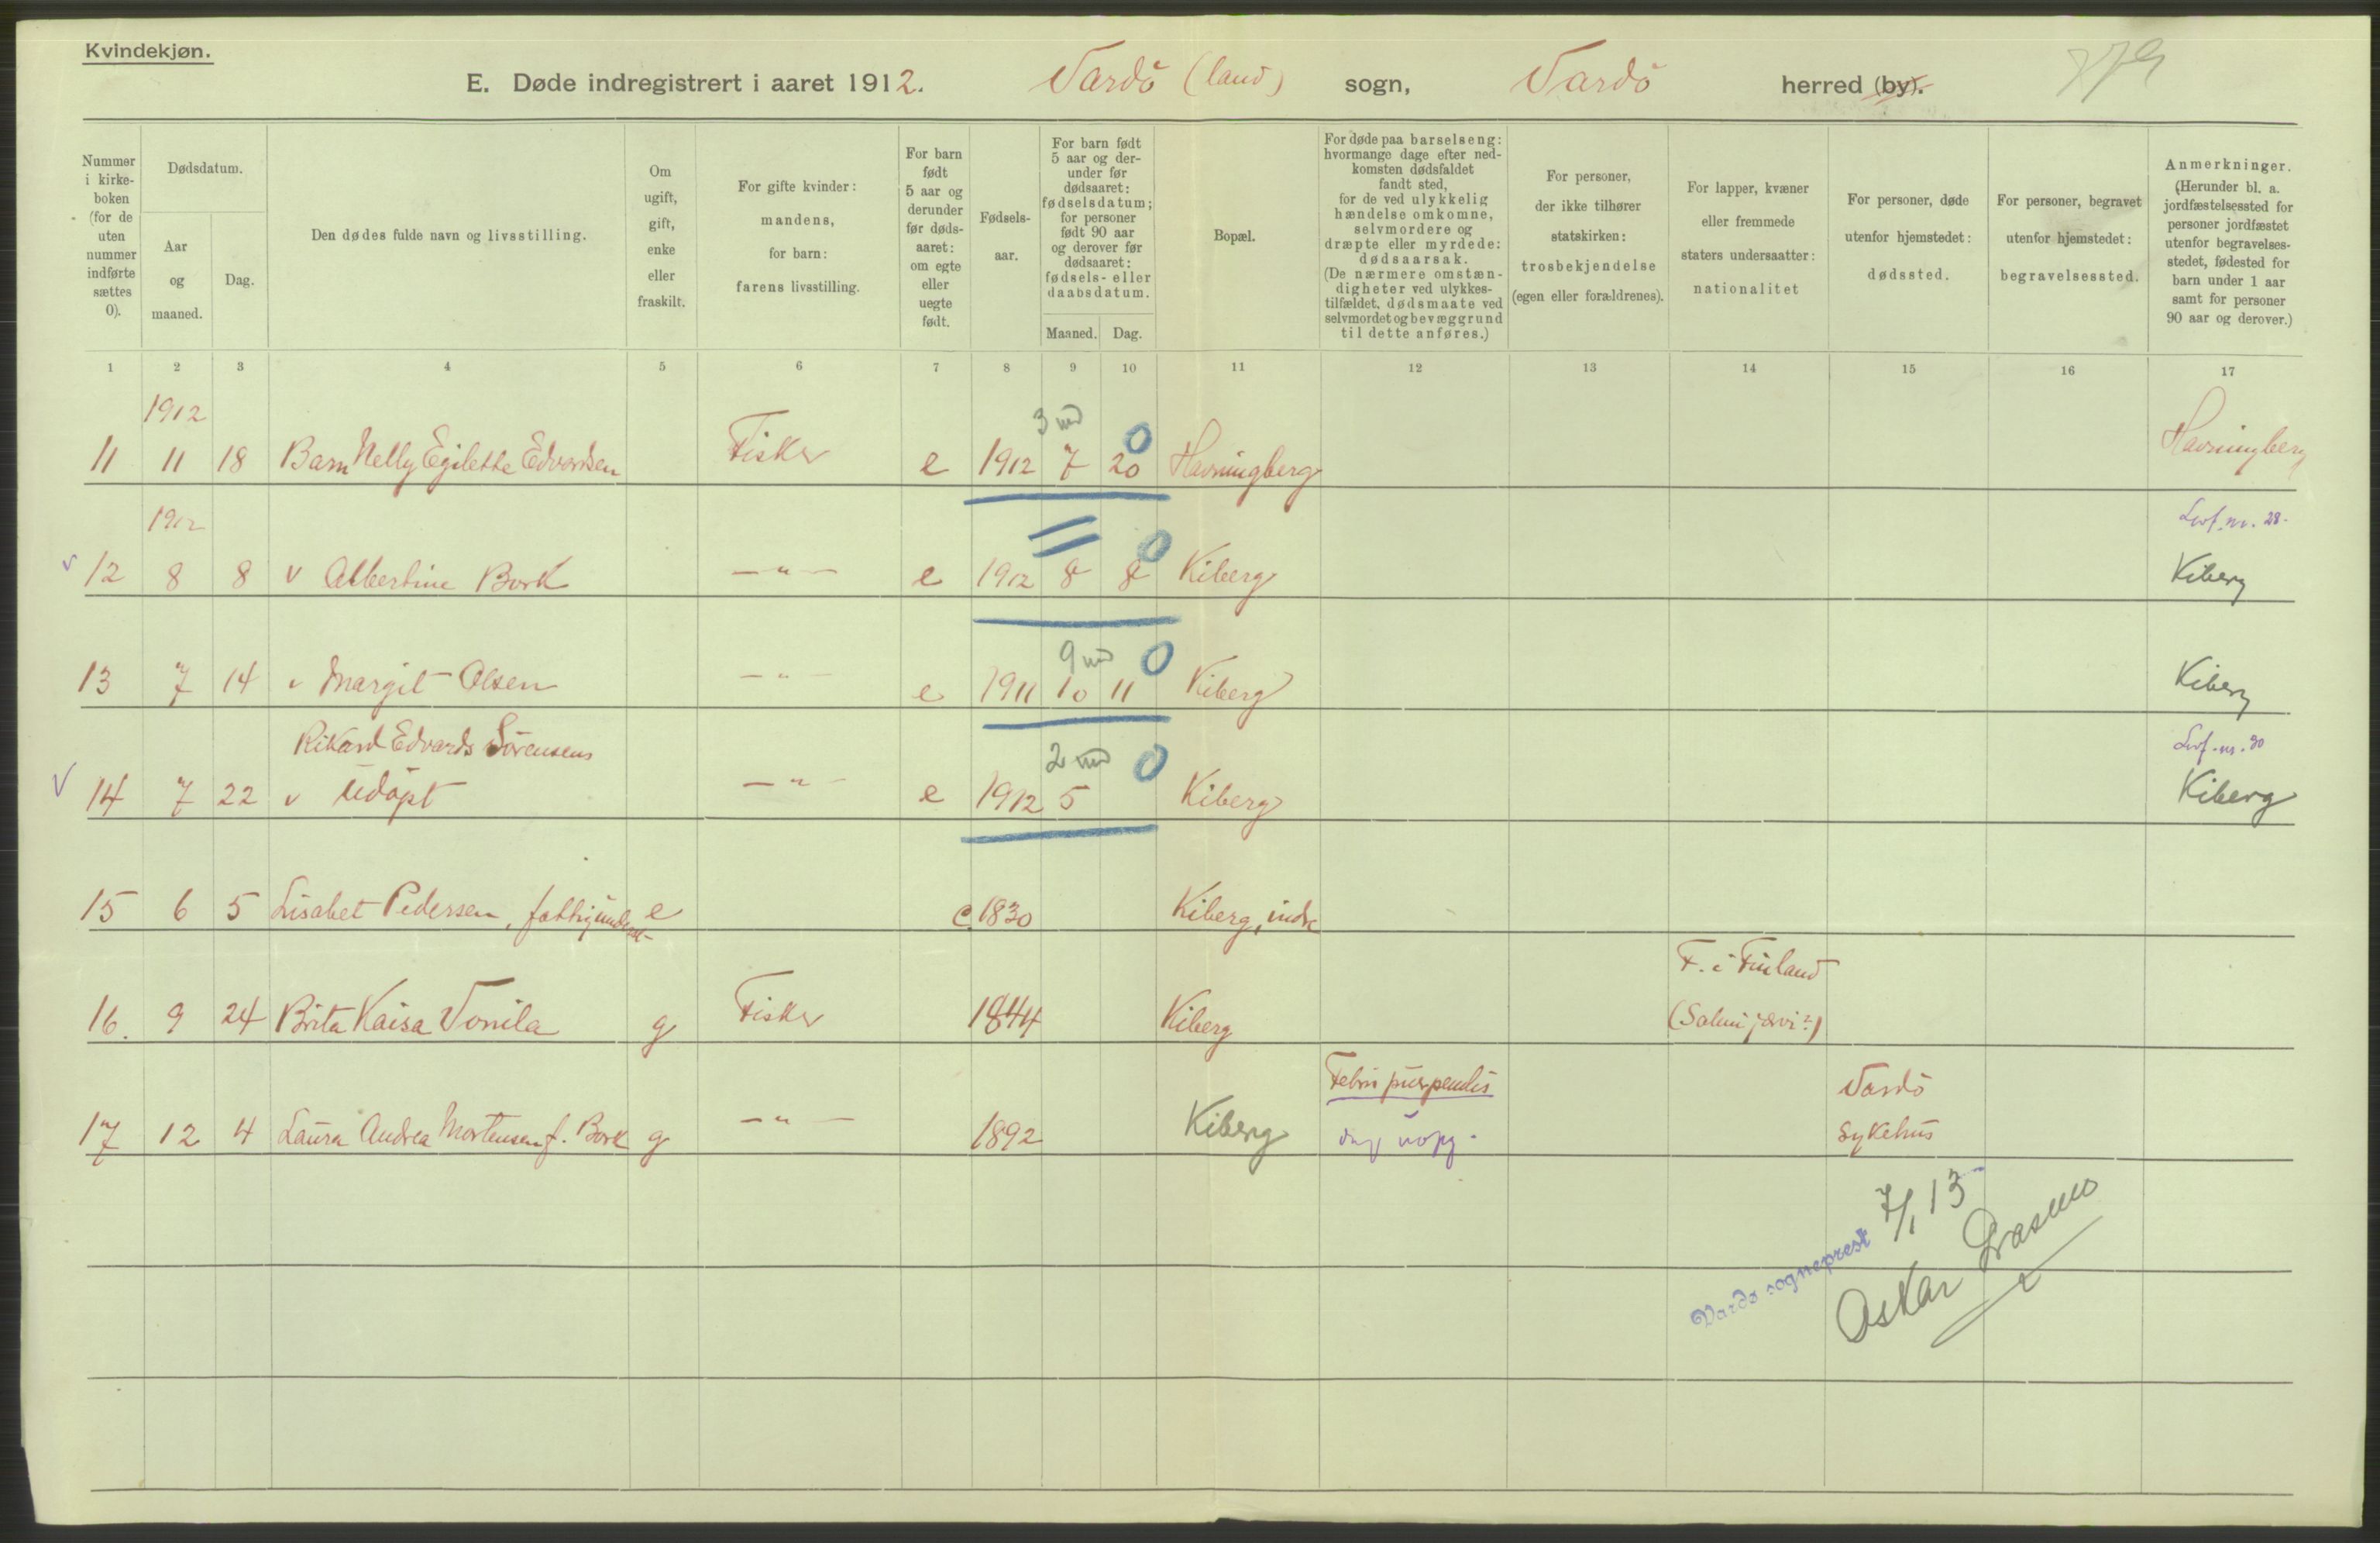 Kvindekjøn.
E. Døde indregistrert i aaret 1912. Vardö (land) sogn, Vardö herred (by).
779
Nummer i kirke-boken (for de uten nummer indførte sættes 0).
Dødsdatum.
Aar og maaned.
Dag.
Den dødes fulde navn og livsstilling.
Om ugift, gift, enke eller fraskilt.
For gifte kvinder: mandens, for barn: farens livsstilling.
For barn født 5 aar og derunder før døds-aaret: om egte eller uegte født.
Fødsels-aar.
For barn født 5 aar og der-under før dødsaaret: fødselsdatum; for personer født 90 aar og derover før dødsaaret: fødsels- eller daabsdatum.
Maaned. Dag.
Bopæl.
For døde paa barselseng: hvormange dage efter ned-komsten dødsfaldet fandt sted, for de ved ulykkelig hændelse omkomne, selvmordere og dræpte eller myrdede: dødsaarsak. (De nærmere omstæn-digheter ved ulykkes-tilfældet, dødsmaate ved selvmordet og bevæggrund til dette anføres.)
For personer, der ikke tilhører statskirken: trosbekjendelse (egen eller forældrenes).
For lapper, kvæner eller fremmede staters undersaatter: nationalitet
For personer, døde utenfor hjemstedet: dødssted.
For personer, begravet utenfor hjemstedet: begravelsessted.
Anmerkninger. (Herunder bl. a. jordfæstelsessted for personer jordfæstet utenfor begravelses-stedet, fødested for barn under 1 aar samt for personer 90 aar og derover.)
1 2 3 4 5 6 7 8 9 10 11 12 13 14 15 16 17
1912 3 md 0
11 11 18 Barn Nelly Egilette Edvardsen Fisker e 1912 7 20 Havningberg Havningberg
1912 0 Levf. nr. 28.
v 12 8 8 v Albertine Bork — " — e 1912 8 8 Kiberg Kiberg
9 md 0
13 7 14 v Margit Olsen — " — e 1911 10 11 Kiberg Kiberg
Rikard Edvards Sörensens 2 md 0 Levf. nr. 30
v 14 7 22 v udöpt — " — e 1912 5 Kiberg Kiberg
15 6 5 Lisabet Pedersen, fattigunderst- e c. 1830 Kiberg, indre
F. i Finland
16. 9 24 Brita Kaisa Vonila g Fisker 1844 Kiberg (Salmijærvi?)
Vardö
17 12 4 Laura Andrea Mortensen f. Bork g — " — 1892 Kiberg dag uopg. sykehus
7/1 13
Vardø sogneprest
Oskar